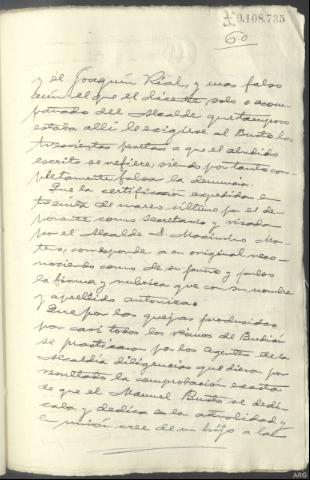 0.108.735
60
y el Joaquín Rial, y mas falso
aun el que el dicente solo o acom-
pañado del Alcalde que tampoco
estaba allí le exigiese al Busto las
trescientas pesetas a que el aludido
escrito se refiere, siendo por tanto com-
pletamente falsa la denuncia.
Que la certificación expedida en
de marzo último por el de-
ponente como Secretario y visada
por el Alcalde D. Maximino Mon-
tero, corresponde a su original reco-
nociendo como de su puño y
la firma y rubrica que con su nombre
y apellido autoriza.
Que por las quejas producidas
por casi todos los vecinos de
se practicaron por los Agentes de la
Alcaldía diligencias que dieron por
resultado la comprobación exacta
de que el Manuel Busto se dedi-
caba y dedica en la actualidad y
en unión cree de un hijo a la
ARG